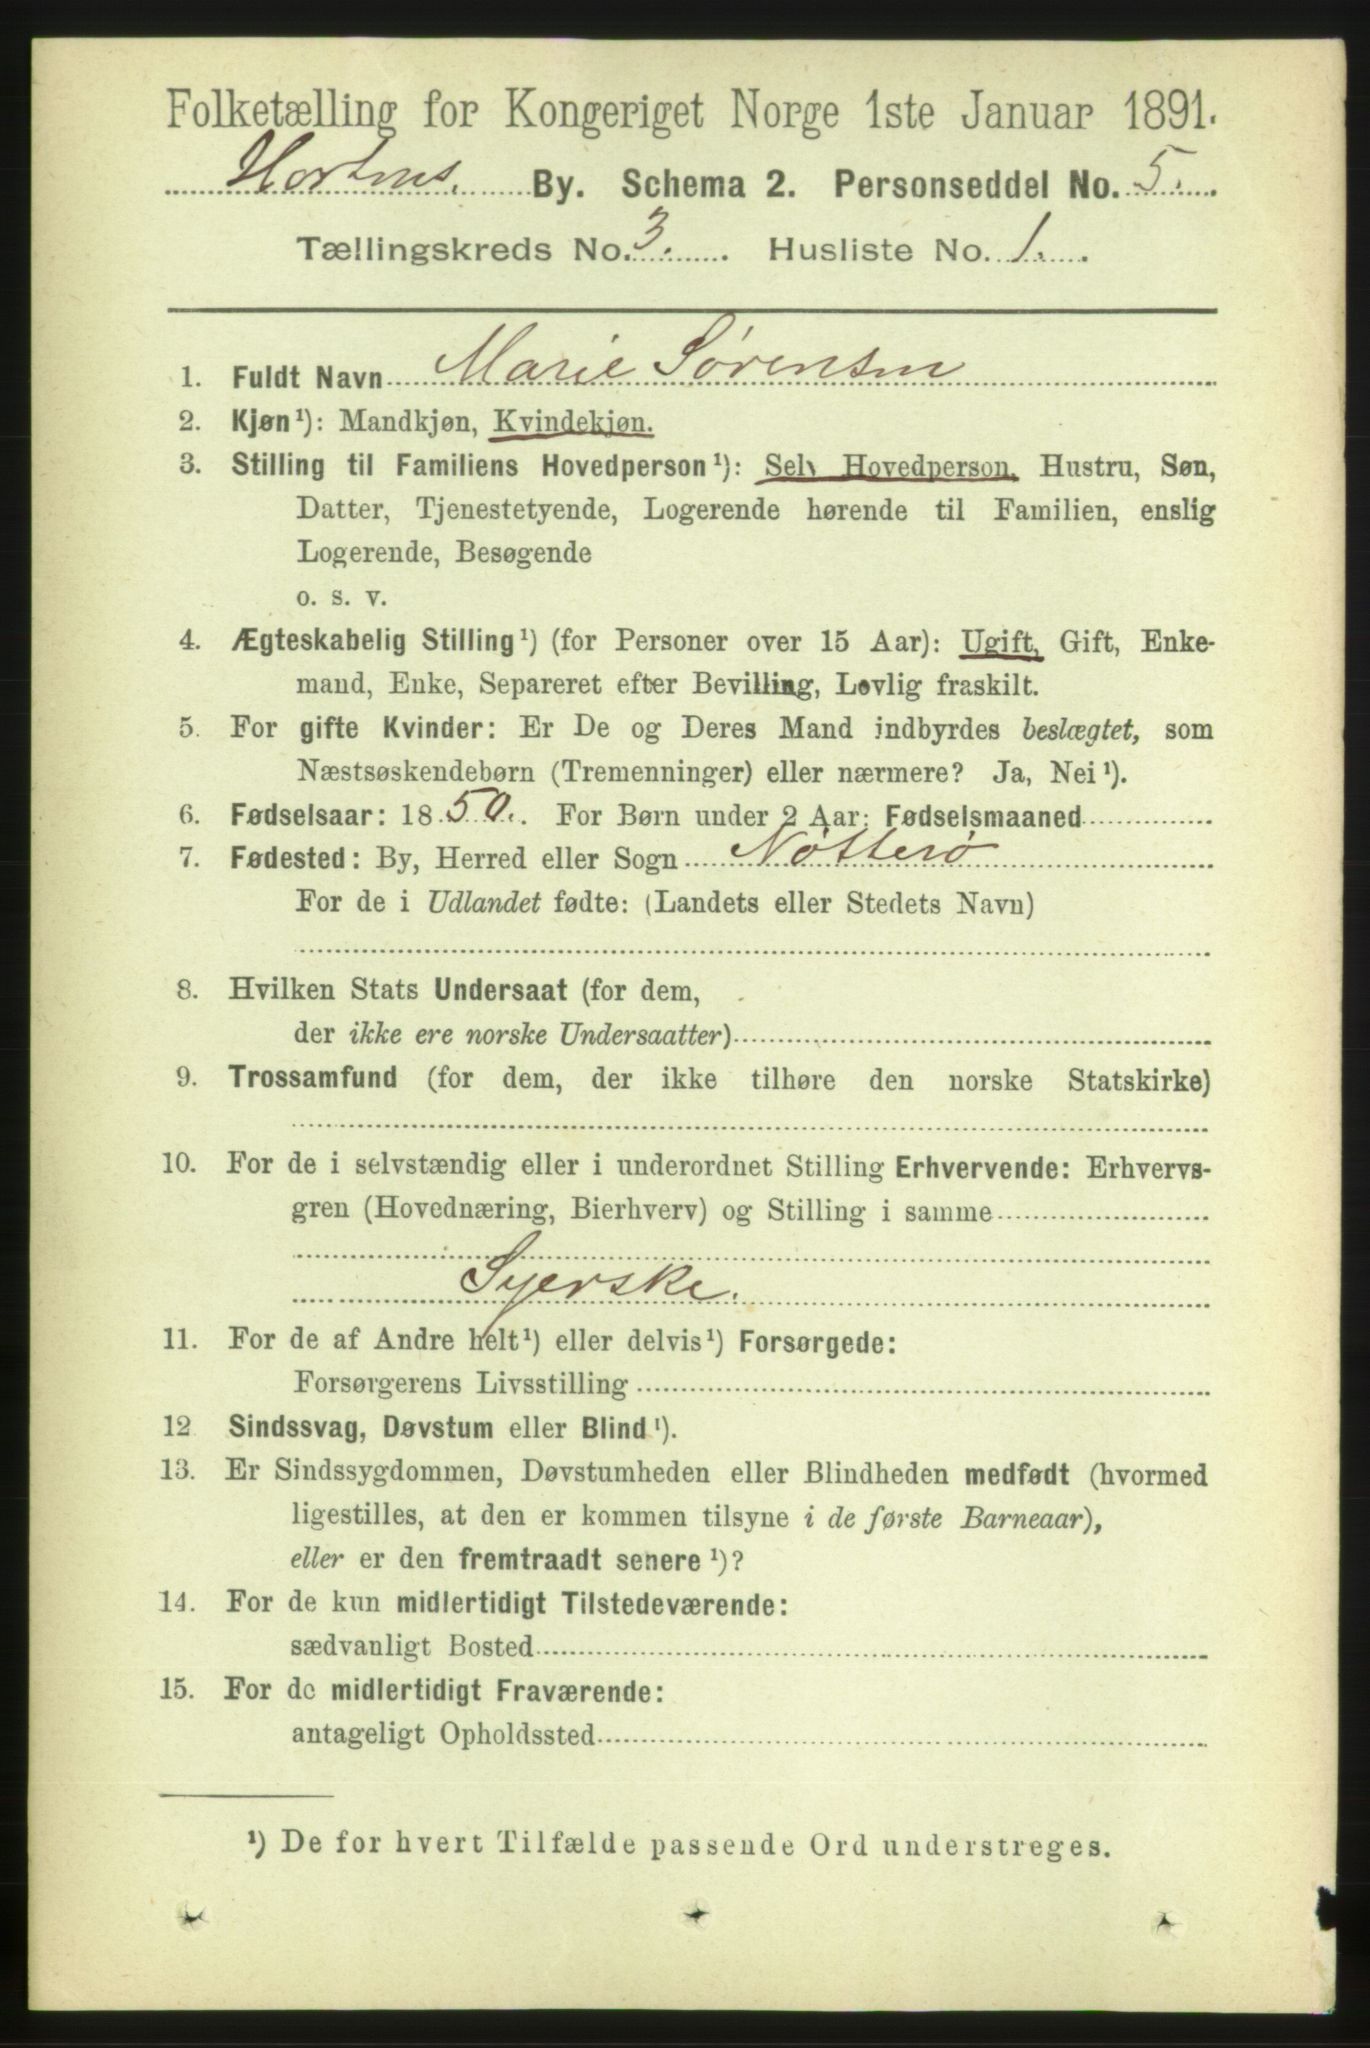 Folketælling for Kongeriget Norge 1ste Januar 1891.
Hortens. By. Schema 2. Personseddel No. 5.
Tællingskreds No. 3. Husliste No. 1.
1. Fuldt Navn Marie Sørensen
2. Kjøn¹): Mandkjøn, Kvindekjøn.
3. Stilling til Familiens Hovedperson¹): Selv Hovedperson, Hustru, Søn,
Datter, Tjenestetyende, Logerende hørende til Familien, enslig
Logerende, Besøgende
o. s. v.
4. Ægteskabelig Stilling¹) (for Personer over 15 Aar): Ugift, Gift, Enke-
mand, Enke, Separeret efter Bevilling, Lovlig fraskilt.
5. For gifte Kvinder: Er De og Deres Mand indbyrdes beslægtet, som
Næstsøskendebørn (Tremenninger) eller nærmere? Ja, Nei¹).
6. Fødselsaar: 1850. For Børn under 2 Aar: Fødselsmaaned
7. Fødested: By, Herred eller Sogn Nøtterø
For de i Udlandet fødte: (Landets eller Stedets Navn)
8. Hvilken Stats Undersaat (for dem,
der ikke ere norske Undersaatter)
9. Trossamfund (for dem, der ikke tilhøre den norske Statskirke)
10. For de i selvstændig eller i underordnet Stilling Erhvervende: Erhvervs-
gren (Hovednæring, Bierhverv) og Stilling i samme
Syerske.
11. For de af Andre helt¹) eller delvis¹) Forsørgede:
Forsørgerens Livsstilling
12 Sindssvag, Døvstum eller Blind¹).
13. Er Sindssygdommen, Døvstumheden eller Blindheden medfødt (hvormed
ligestilles, at den er kommen tilsyne i de første Barneaar),
eller er den fremtraadt senere¹)?
14. For de kun midlertidigt Tilstedeværende:
sædvanligt Bosted
15. For de midlertidigt Fraværende:
antageligt Opholdssted
¹) De for hvert Tilfælde passende Ord understreges.